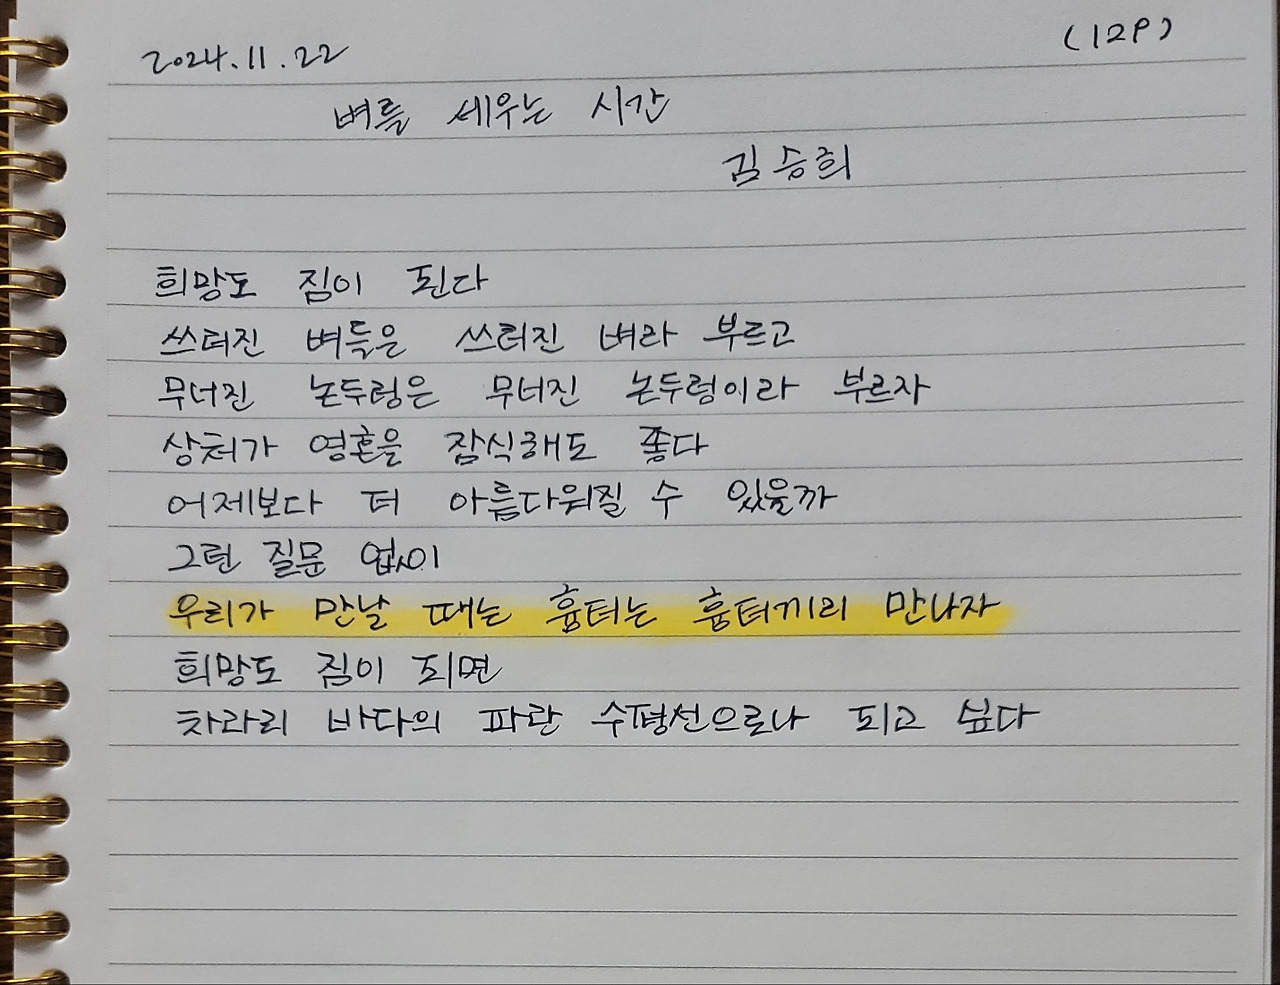 2024.11.22
(12P)
벼를 세우는 시간
김승희
희망도 짐이 된다
쓰러진 벼들은 쓰러진 벼라 부르고
무너진 논두렁은 무너진 논두렁이라 부르자
상처가 영혼을 잠식해도 좋다
어제보다 더 아름다워질 수 있을까
그런 질문 없이
우리가 만날 때는 흉터는 흉터끼리 만나자
희망도 짐이 되면
차라리 바다의 파란 수평선으로나 되고 싶다